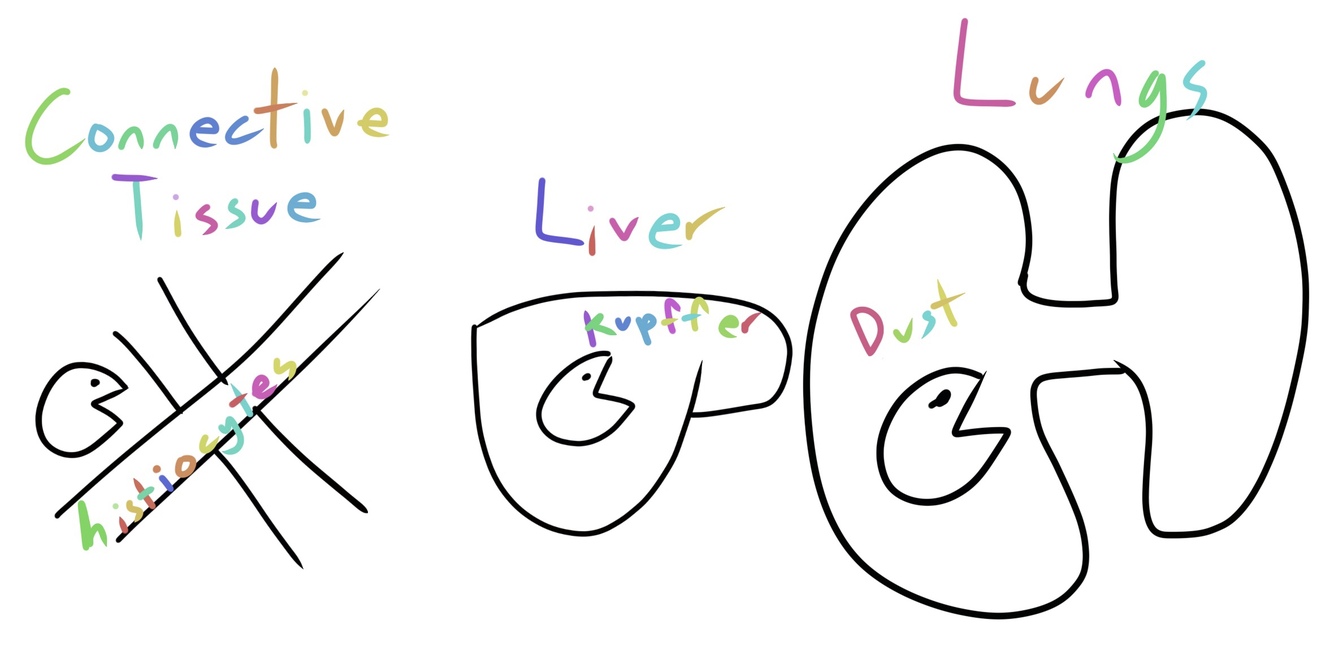 Connective
Tissue
histiocytes
Liver
Kupffer
Lungs
Dust